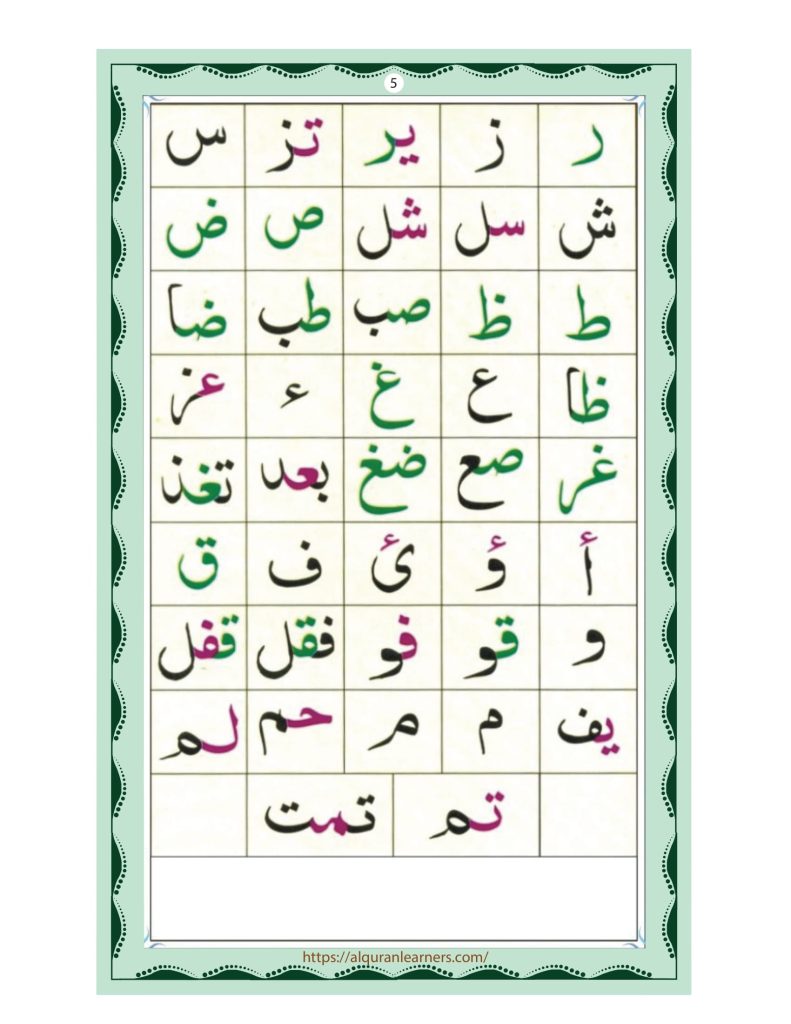 5
ر ز یر تز س
ش سل شل ص ض
ط ظ صب طب ضا
ظا ع غ ء عز
غر صع ضغ بعد تغذ
أ ؤ ئ ف ق
و قو فو فقل قفل
یف م م حم لم
تم تمت
https://alquranlearners.com/